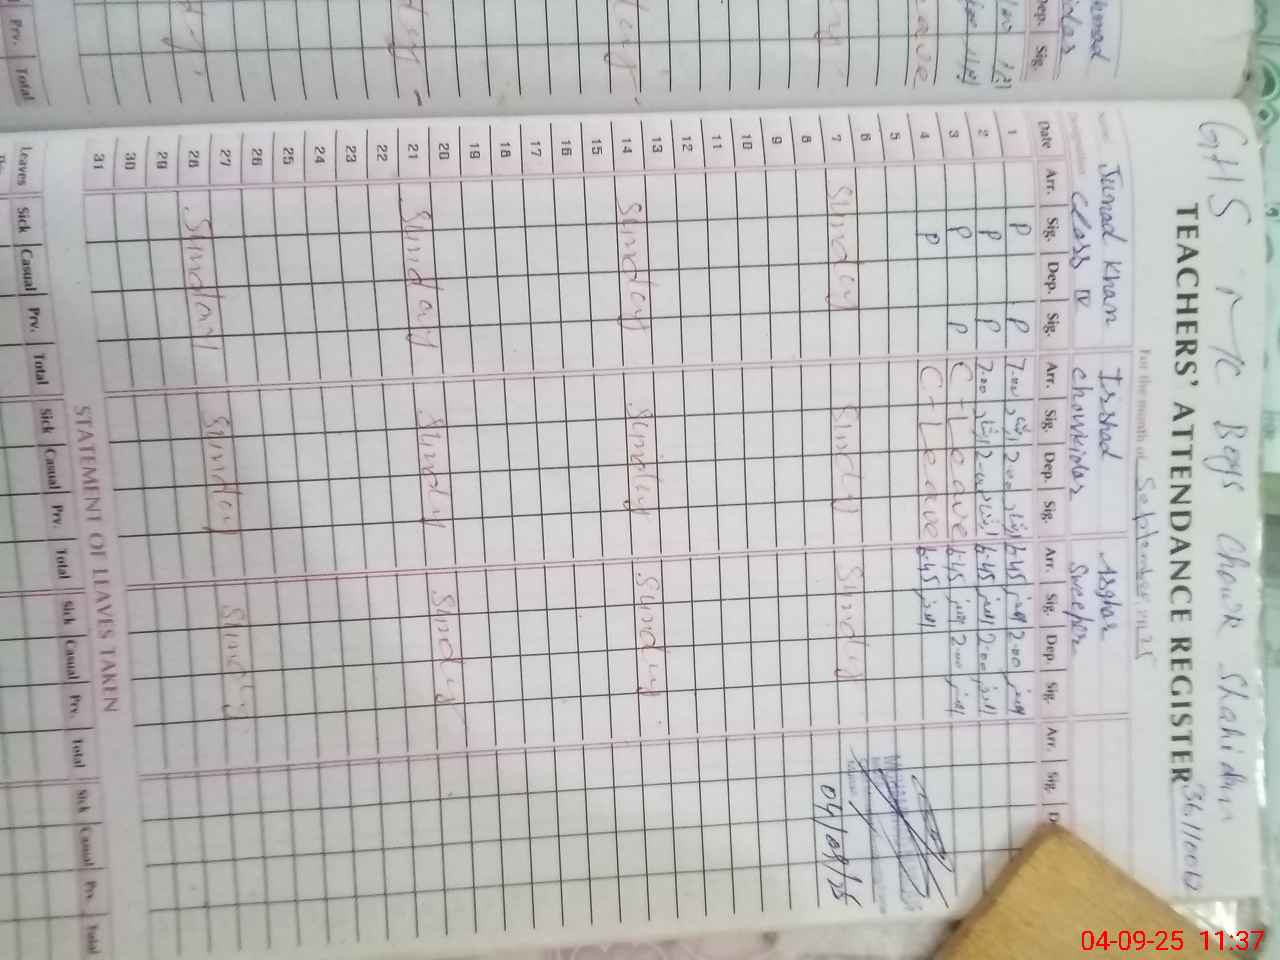 GHS MC Boys Chowk Shahidan
TEACHERS' ATTENDANCE REGISTER
For the month of September
Junad Khan Irshad Asghar
Class IV Chowkidar Sweeper
Date Arr. Sig. Dep. Sig. Arr. Sig. Dep. Sig. Arr. Sig. Dep. Sig. Arr. Sig.
1 P P 7.00 ارشاد 2.00 ارشاد 6.45 اصغر 2.00 اصغر
2 P P 7.00 ارشاد 2.00 ارشاد 6.45 اصغر 2.00 اصغر
3 P P C-Leave 6.45 اصغر 2.00 اصغر
4 P C-Leave 6.45 اصغر
5
6
7 Sunday Sunday Sunday 04/09/25
8
9
10
11
12
13
14 Sunday Sunday Sunday
15
16
17
18
19
20
21 Sunday Sunday Sunday
22
23
24
25
26
27
28 Sunday Sunday Sunday
29
30
31
STATEMENT OF LEAVES TAKEN
Leaves Sick Casual Prv. Total Sick Casual Prv. Total Sick Casual Prv. Total Sick Casual Prv. Total
04-09-25 11:37